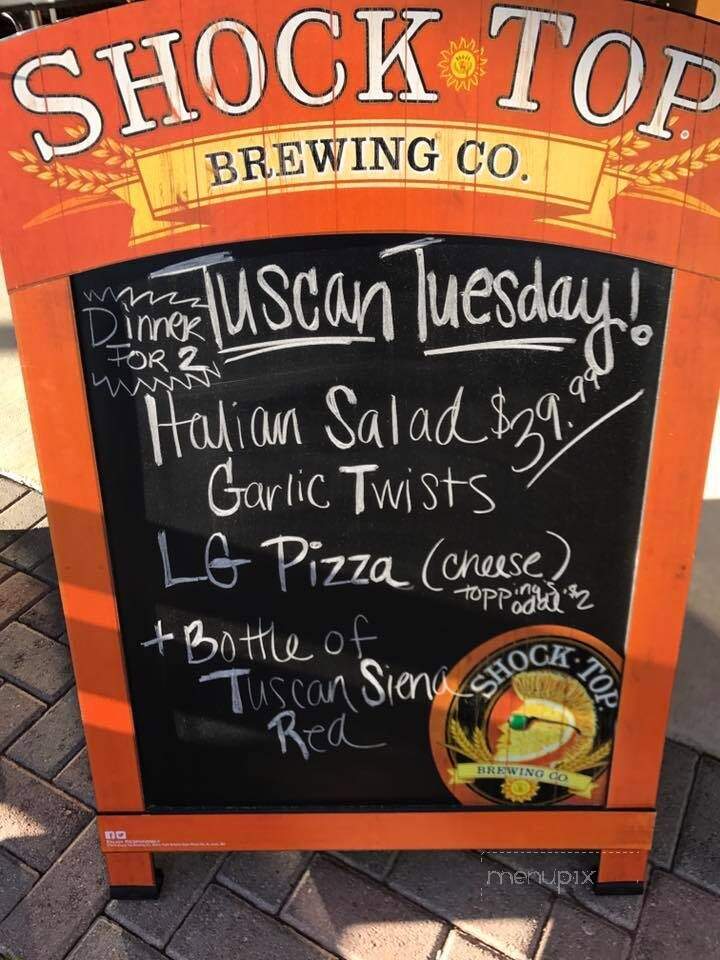 SHOCK TOP
BREWING CO.
Dinner FOR 2
Tuscan Tuesday!
Italian Salad $39.99
Garlic Twists
LG Pizza (cheese)
toppings addl $2
+ Bottle of
Tuscan Siena
Red
SHOCK TOP
BREWING CO.
menupix